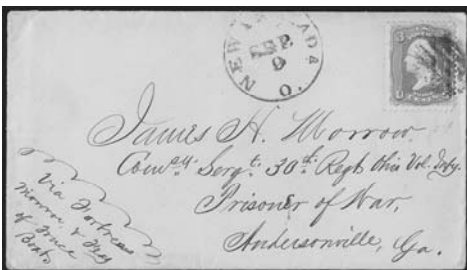 SEP
9
O.
3
James H. Morrow
Com^sy. Sergt. 30th. Regt Ohio Vol. Infy.
Prisoner of War,
Andersonville, Ga.
Via Fortress
Monroe, & Flag
of Truce
Boat.